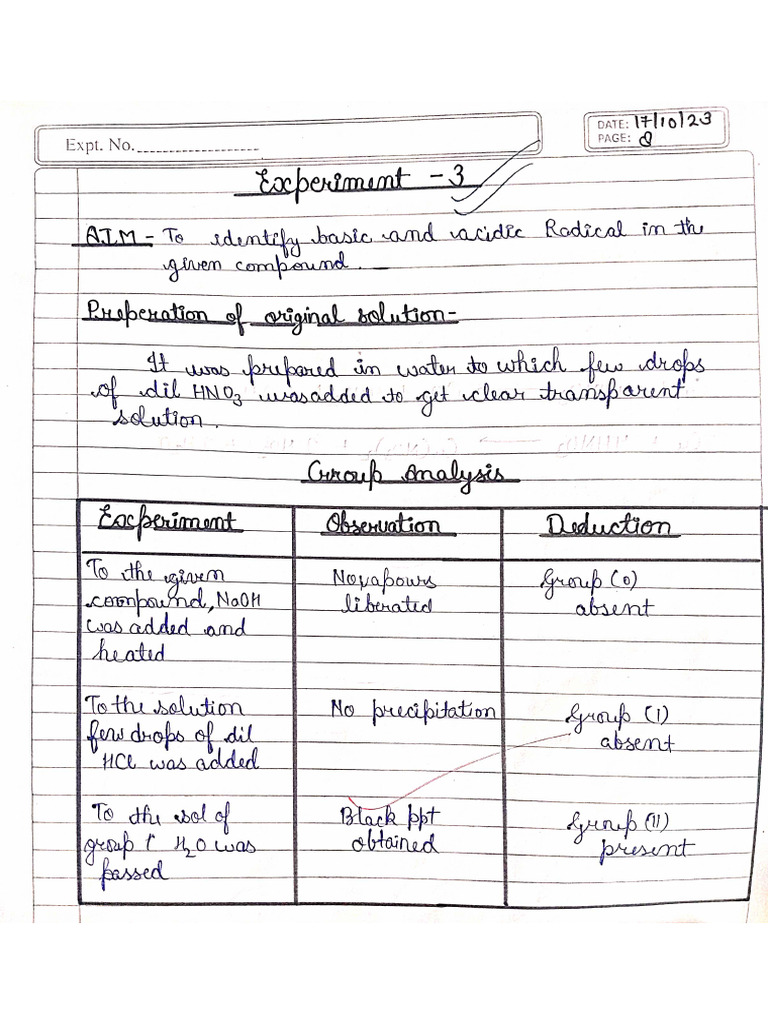 Expt. No.
DATE: 17/10/23
PAGE: 8
Experiment - 3
AIM - To identify basic and acidic Radical in the
given compound.
Preperation of original solution-
It was prepared in water to which few drops
of dil HNO3 was added to get clear transparent
solution.
Group Analysis
Experiment Observation Deduction
To the given
compound, NaOH
was added and
heated
No vapours
liberated
Group (0)
absent
To the solution
few drops of dil
HCl was added
No precipitation
Group (I)
absent
To the sol of
group I H2O was
passed
Black ppt
obtained
Group (II)
present